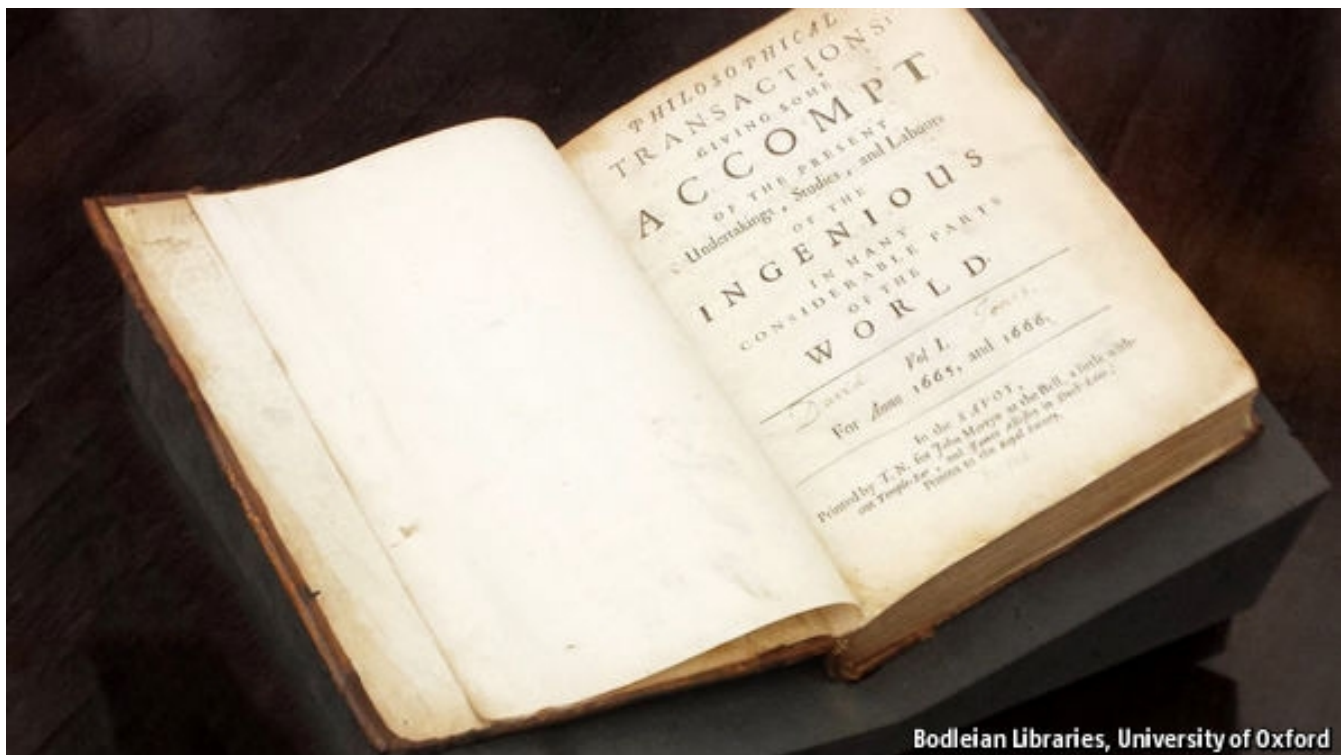 PHILOSOPHICAL
TRANSACTIONS:
GIVING SOME
ACCOMPT
OF THE PRESENT
Undertakings, Studies, and Labours
OF THE
INGENIOUS
IN MANY
CONSIDERABLE PARTS
OF THE
WORLD.
Vol I.
For Anno 1665, and 1666.
In the SAVOY,
Printed by T. N. for John Martyn at the Bell, a little with-
out Temple-Bar, and James Allestry in Duck-Lane,
Printers to the Royal Society.
Bodleian Libraries, University of Oxford